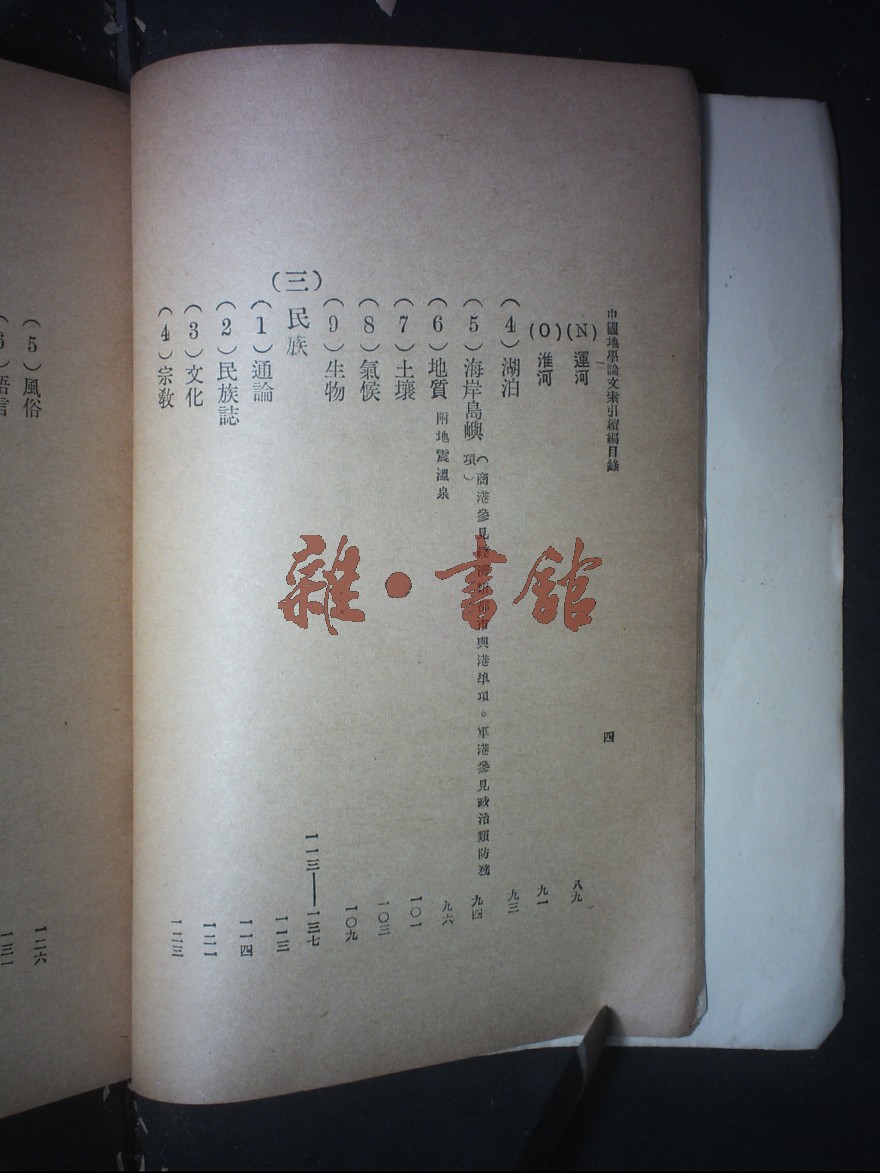 中國地學論文索引續編目錄 四
(N) 運河 八九
(O) 淮河 九一
(4) 湖泊 九三
(5) 海岸島嶼 (商港參見 市與港埠項。軍港參見政治類防務項) 九四
(6) 地質 附地震溫泉 九六
(7) 土壤 一〇一
(8) 氣候 一〇三
(9) 生物 一〇九
(三) 民族 一一三——一三七
(1) 通論 一一三
(2) 民族誌 一一四
(3) 文化 一二一
(4) 宗教 一二三
(5) 風俗 一二六
(6) 語言 一三一
雜·書館